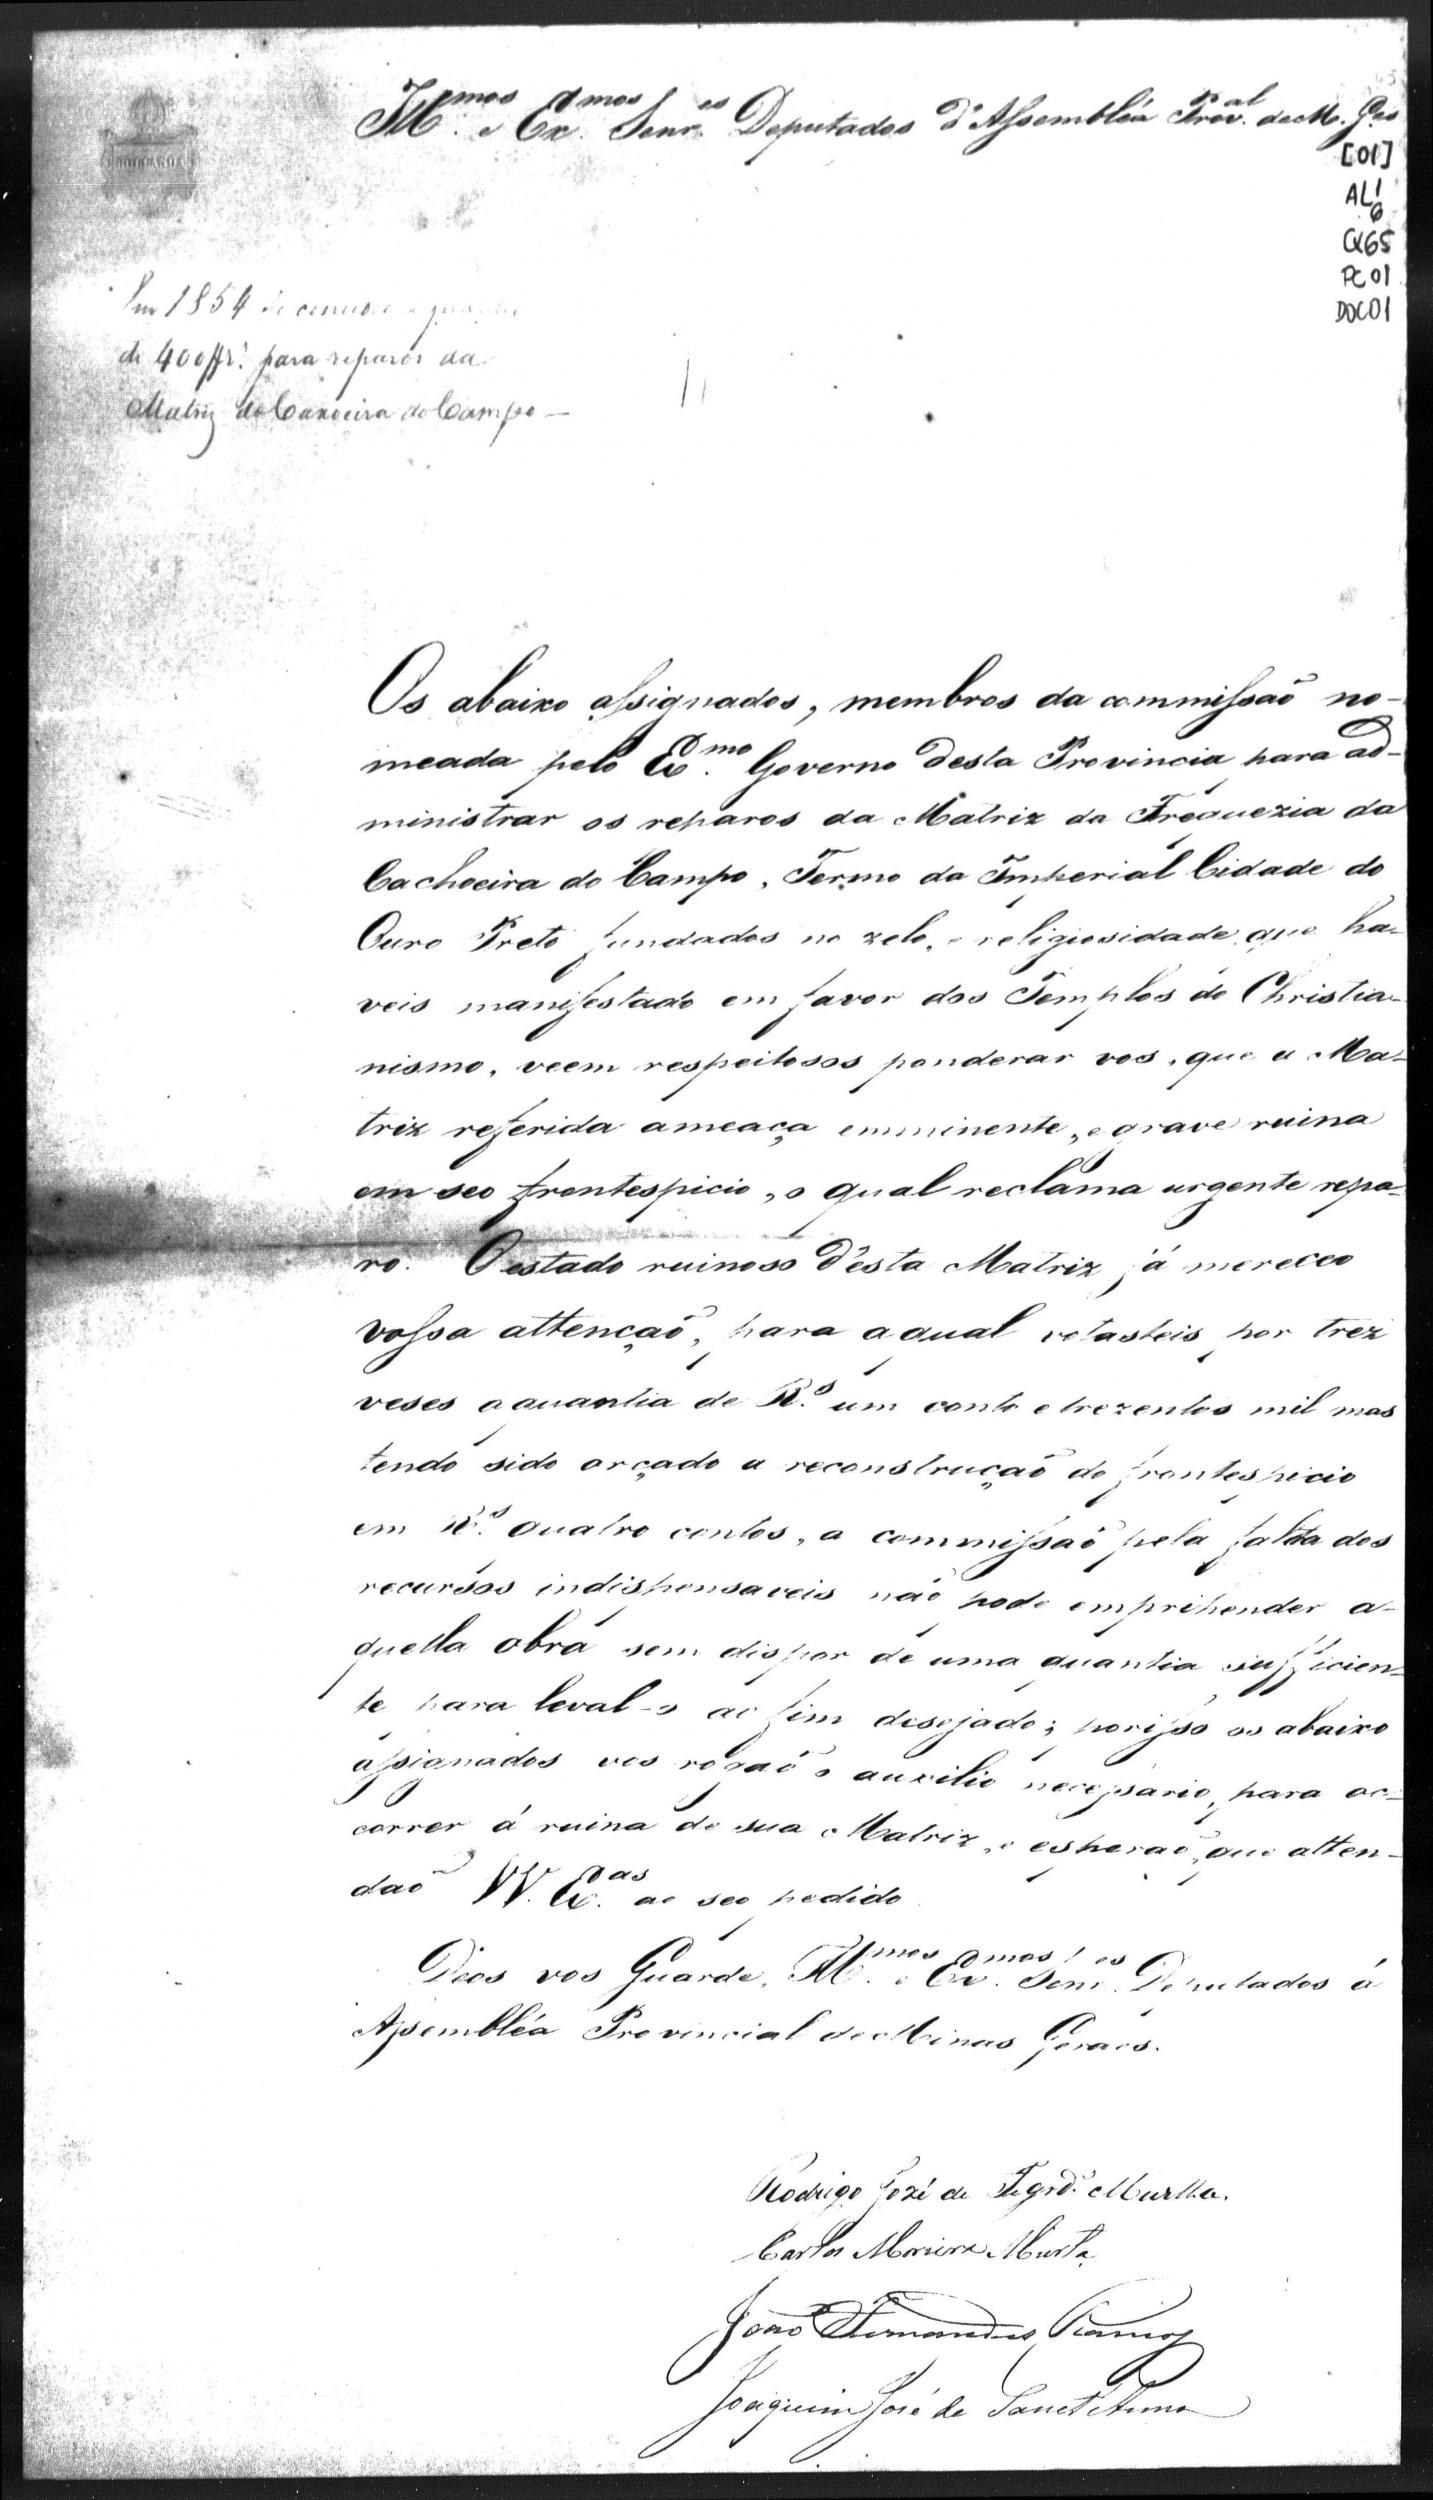 Ill.mos e Ex.mos Senr.es Deputados d'Assembléa Prov.al de M. G.es
[01]
AL1
6
CX65
PC01
DOC01
Em 1854 se concedeo a quantia
de 400$rs. para reparos da
Matriz da Caxoeira do Campo —
Os abaixo assignados, membros da commissaõ no-
meada pelo Ex.mo Governo desta Provincia para ad-
ministrar os reparos da Matriz da Freguezia da
Cachoeira do Campo, Termo da Imperial Cidade do
Ouro Preto fundados no zelo, e religiosidade que ha-
veis manifestado em favor dos Templos do Christia-
nismo, veem respeitosos ponderar vos, que a Ma-
triz referida ameaça emminente, e grave ruina
em seo frontespicio, o qual reclama urgente repa-
ro. O estado ruinoso d'esta Matriz já mereceo
vossa attençaõ, para a qual votasteis por trez
veses a quantia de R.s um conto e trezentos mil mas
tendo sido orçado a reconstruçaõ do frontespicio
em R.s quatro contos, a commissaõ pela falta dos
recursos indispensaveis não pode emprihender a-
quella obra sem dispor de uma quantia sufficien-
te para leval-o ao fim desejado; porisso os abaixo
assignados vos rogaõ o auxilio necessario, para oc-
correr á ruina de sua Matriz, e esperaõ, que atten-
daõ VV. Ex.as ao seo pedido
Deos vos Guarde, Ill.mos e Ex.mos Senr.es Deputados á
Assembléa Provincial de Minas Geraes.
Rodrigo José de Figrdo. Murtta.
Carlos Moreira Murta
João Fernandes Ramos
Joaquim José de Sanct'Anna